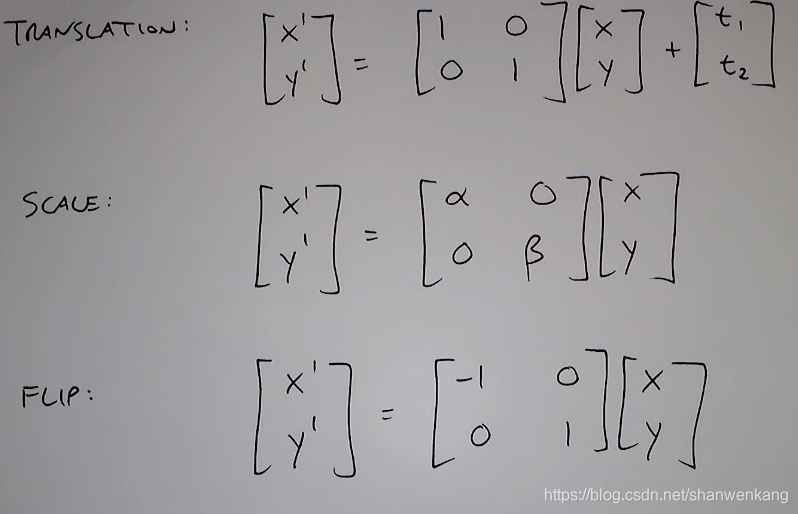 TRANSLATION: [x' y'] = [1 0 0 1] [x y] + [t₁ t₂]
SCALE: [x' y'] = [α 0 0 β] [x y]
FLIP: [x' y'] = [-1 0 0 1] [x y]
https://blog.csdn.net/shanwenkang